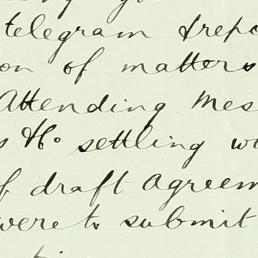 telegram & repo
on of matters
Attending Mes
s Ho settling w
f draft Agreem
were to submit